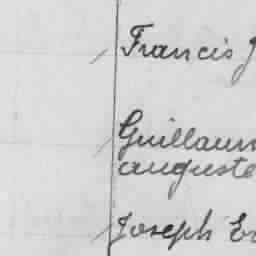 Francis J
Guillaum
auguste
Joseph Er